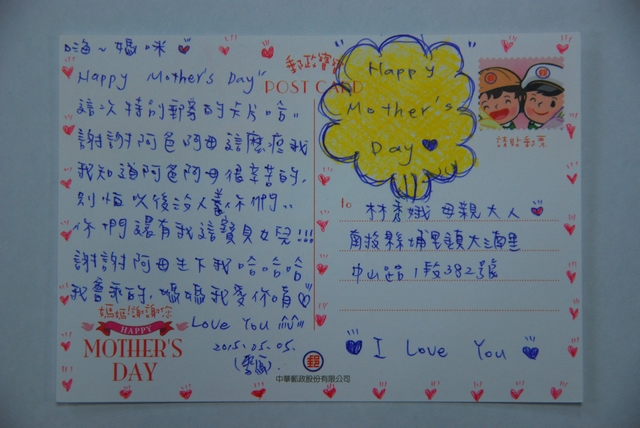 嗨~媽咪
Happy Mother's Day"
這次特別郵寄的卡片哈"
謝謝阿爸阿母這麼疼我
我知道阿爸阿母很辛苦的,
別怕以後沒人養你們..
你們還有我這寶貝女兒!!!
謝謝阿母生下我哈哈哈
我會乖的,媽媽我愛你唷
Love You
2015.05.05.
媽媽!謝謝您
HAPPY
MOTHER'S
DAY
郵政寶寶
POST CARD
Happy
Mother's
Day
請貼郵票
to
林秀娥 母親大人
南投縣埔里鎮大湳里
中山路1段382號
I Love You
郵
中華郵政股份有限公司